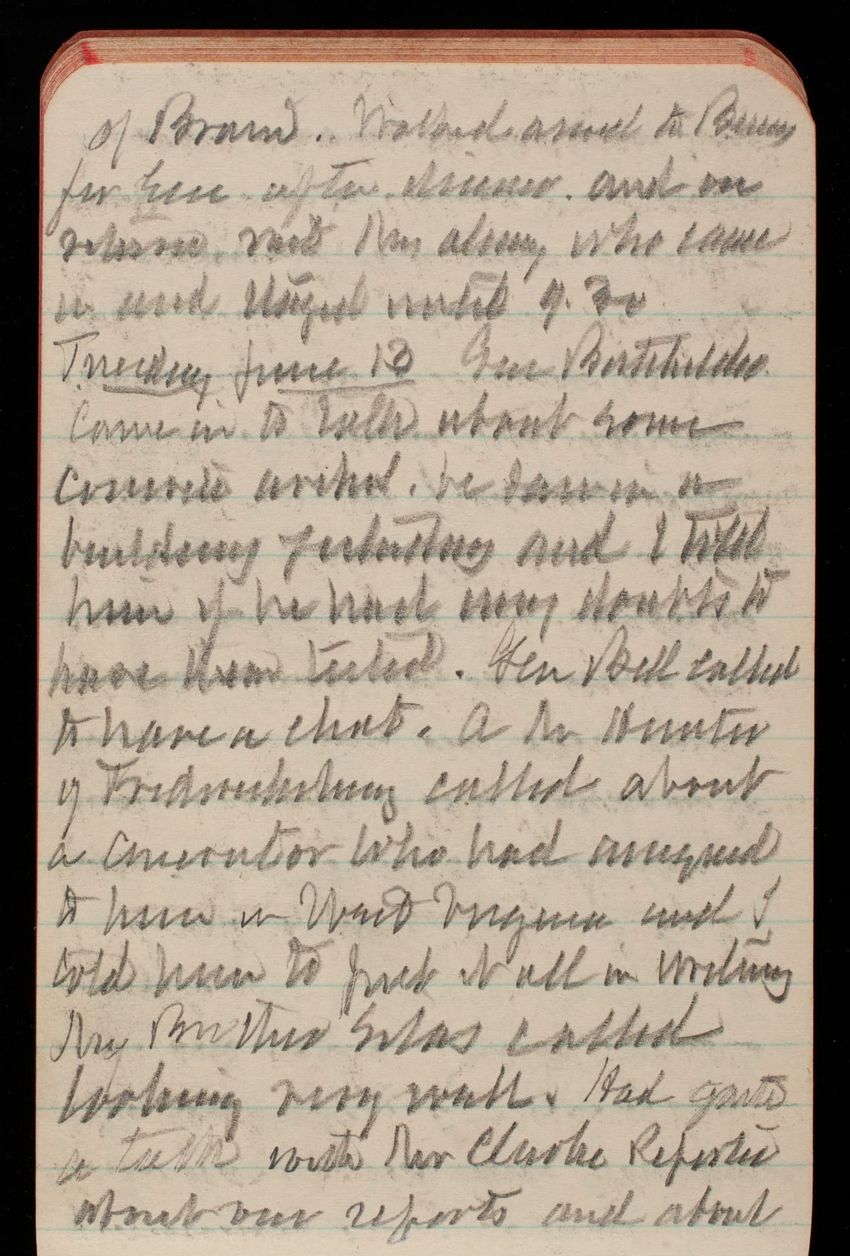 of Brain. Walked around to
for Gen after dinner. and on
return. met Mr who came
in and stayed until 9.30
Tuesday June 13 Gen
Came in to talk about some
he saw in a
building yesterday and I told
him if he had any doubts to
have them tested. Gen Bell called
to have a chat. A Mr Hunter
of called about
a who had assigned
to him in West Virginia and I
told him to put it all in writing
My Brother Silas called
looking very well. Had quite
a talk with Mr Clarke Reporter
about our reports and about